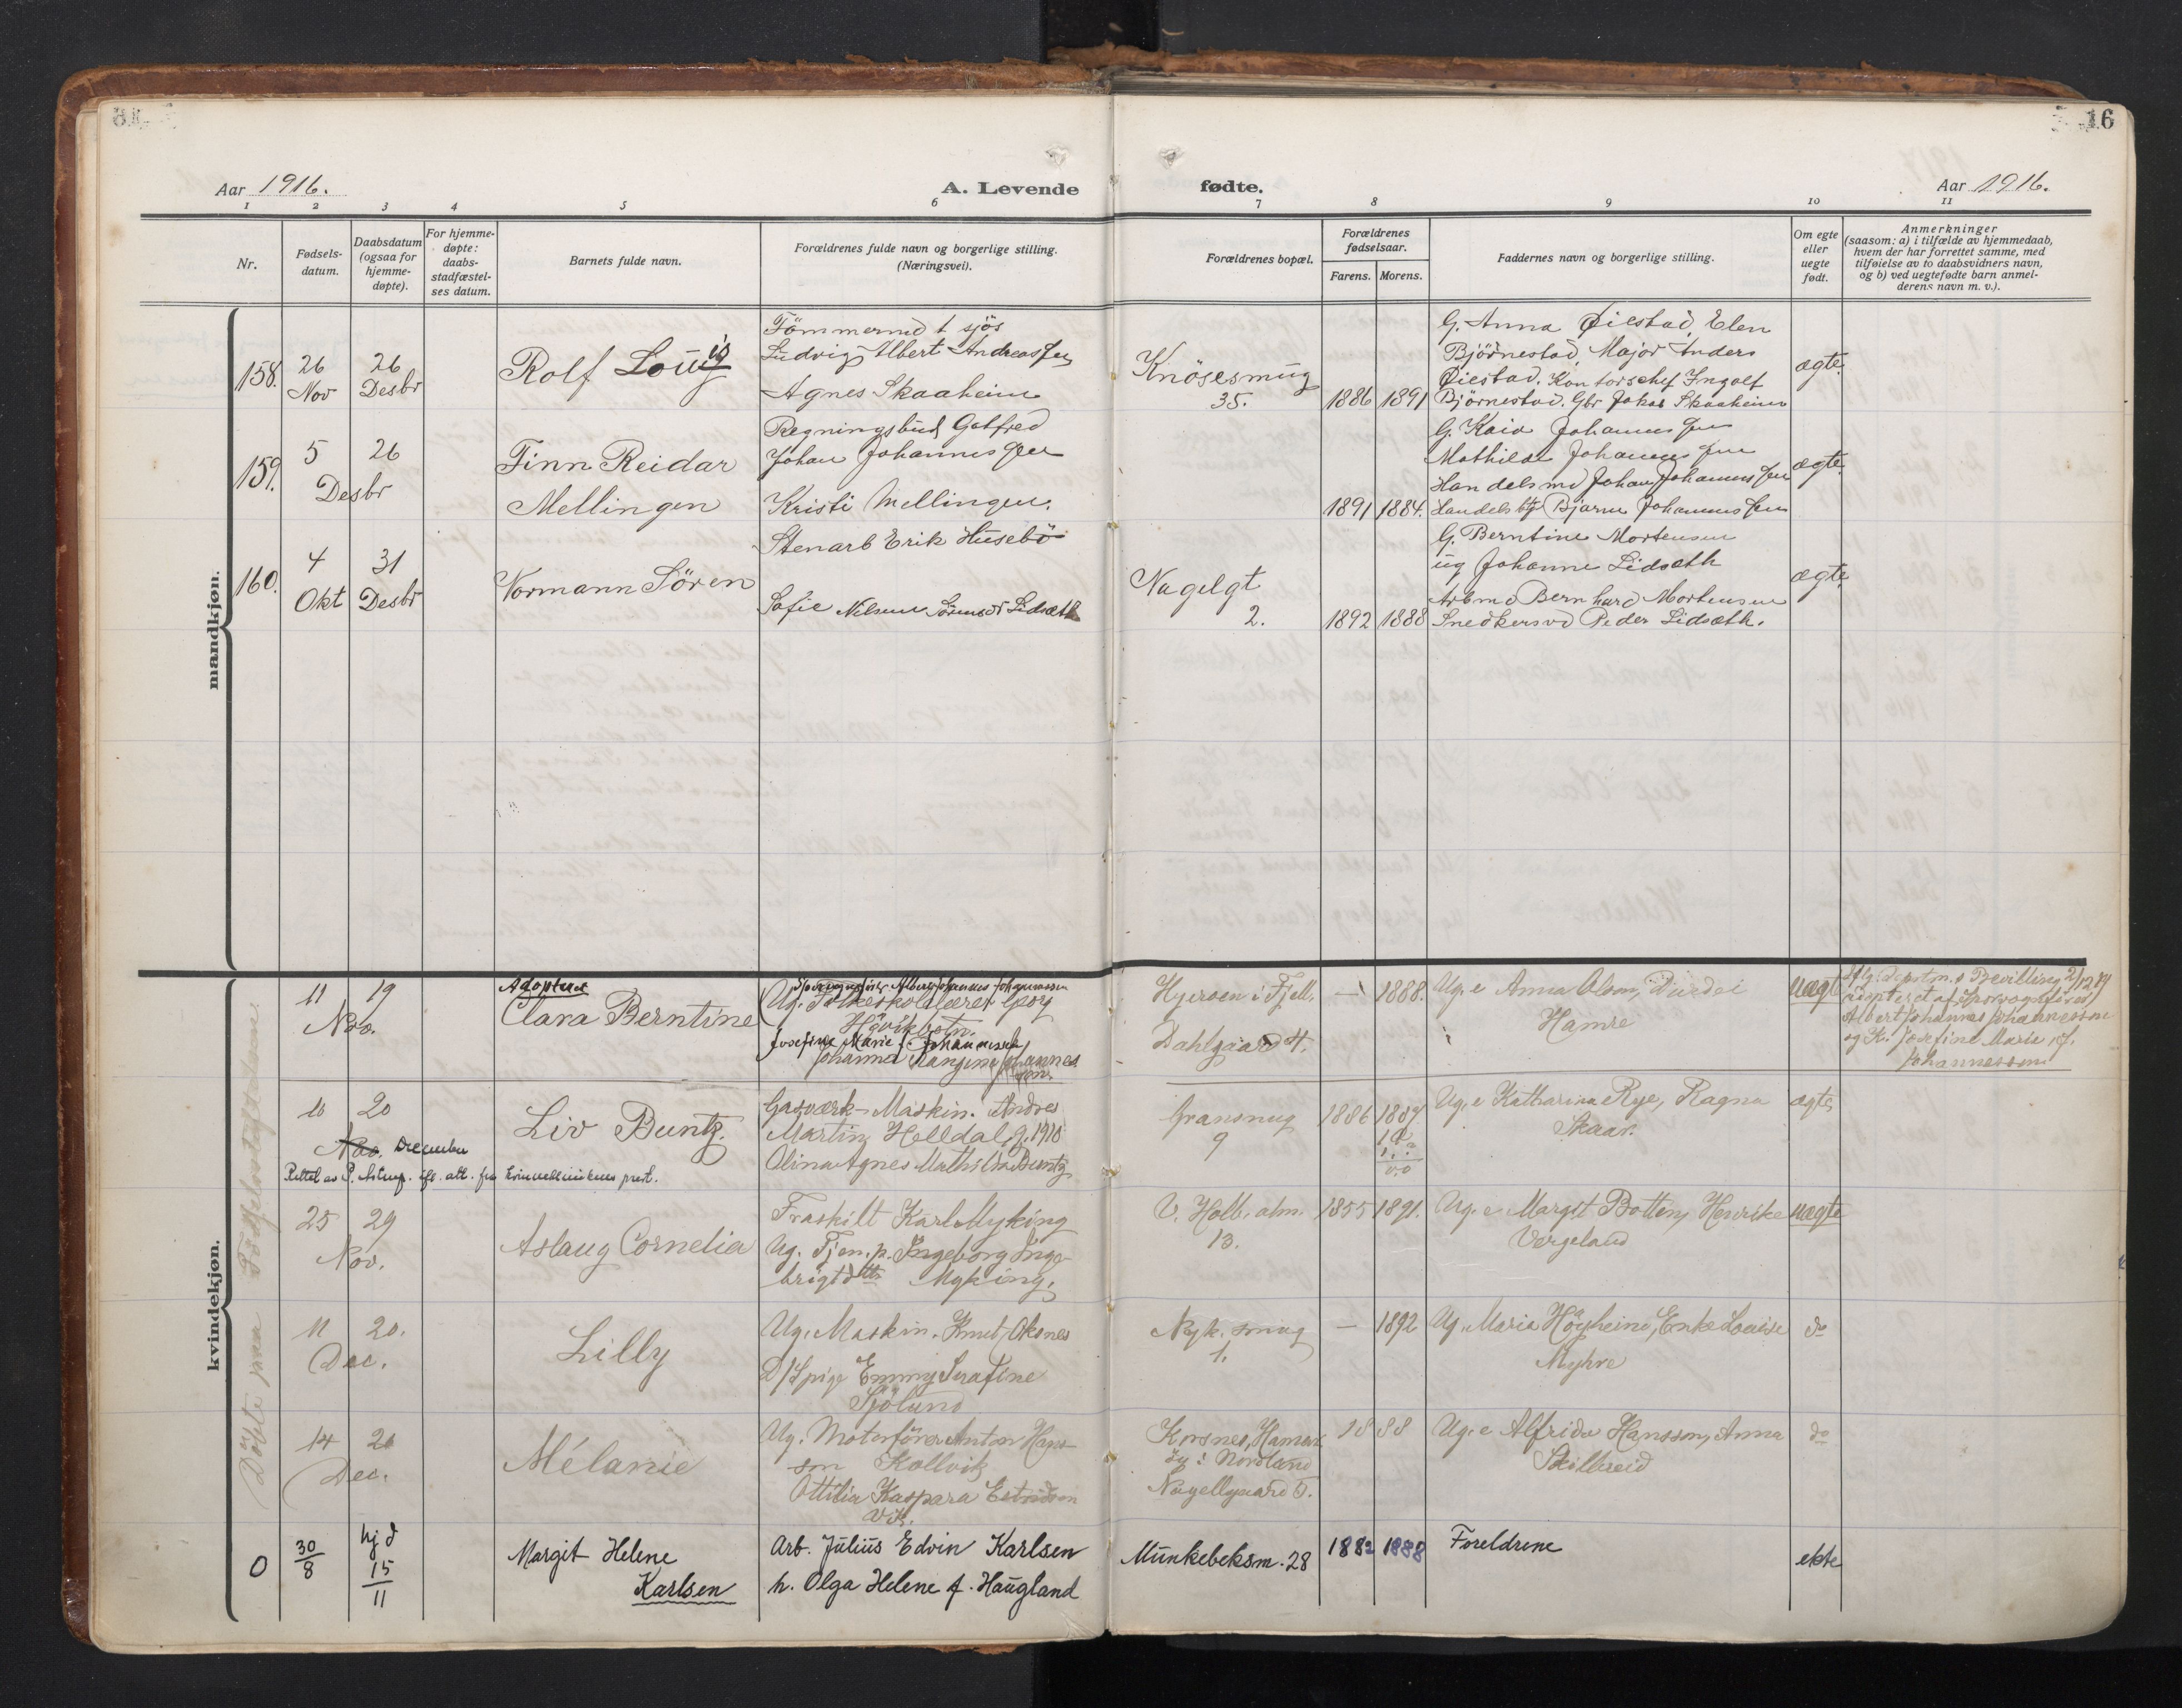 16
Aar 1916.
A. Levende fødte.
Aar 1916.
1 2 3 4 5 6 7 8 9 10 11
Nr.
Fødsels-
datum.
Daabsdatum
(ogsaa for
hjemme-
døpte).
For hjemme-
døpte:
daabs-
stadfæstel-
ses datum.
Barnets fulde navn.
Forældrenes fulde navn og borgerlige stilling.
(Næringsvei).
Forældrenes bopæl.
Forældrenes
fødselsaar.
Farens. Morens.
Faddernes navn og borgerlige stilling.
Om egte
eller
uegte
født.
Anmerkninger
(saasom: a) i tilfælde av hjemmedaab,
hvem der har forrettet samme, med
tilføielse av to daabsvidners navn,
og b) ved uegtefødte barn anmel-
derens navn m. v.).
mandkjøn.
158. 26 Nov
26 Desbr
Rolf Louis
Tömmermd t sjös
Ludvig Albert Andreassen
Agnes Skaaheim
Knösesmug
35.
1886 1891
G. Anna Øiestad, Elen
Björnestad, Major Anders
Øiestad, Kontorschef Ingolf
Björnestad. Gbr Jakob Skaaheim
ægte.
159. 5 26
Desbr
Finn Reidar
Mellingen
Regningsbud Gotfred
Johan Johannessen
Kristi Mellingen.
1891 1884.
G. Kaia Johannessen
Mathilde Johannessen
Handelsmd Johan Johannessen
Handelsbtj Bjarne Johannessen
ægte.
160. 4 Okt
31 Desbr
Normann Sören
Stenarb Erik Husebö
Sofie Nilsen Lidsæth
Nagelgt
2.
1892 1888
G. Berntine Mortensen
ug Johanne Lidsæth
Arbmd Bernhard Mortensen
Snedkersvd Peder Lidsæth.
ægte.
kvindekjøn.
Döbte paa Födselsstiftelsen
11 19
Nov.
Adopteret
Clara Berntine
Albert Johannes Johannessen
Ug. Folkeskolelærer Georg
Hövikbotn.
Josefine Marie f. Johannessen
Johanna Rangine Johannes-
sen.
Hjerøen i Fjell.
Dahlgaard 4.
— 1888.
Ug.e Anna Olsen, Durdei
Hamre
uægt
Albert Johannes Johannessen
og H. Josefine Marie f.
Johannessen
10 20
Nov. December
Rettet av P. Astrup. ifl. att. fra kvindeklinikens prest.
Liv Buntz.
Gasværk-Maskin. Andres
Martin Helldal, g. 1910
Olina Agnes Mathilda Buntz
Gransmug
9
1886 1887
Ug.e Katharina Rye, Ragna
Skaar.
ægte
25 29
Nov.
Aslaug Cornelia
Fraskilt Karl Myking
Ug. Tjen.p. Ingeborg Inge-
brigtsdtr Myking.
V. Holb. alm.
13.
1855 1891.
Ug. e Margit Botten, Henrike
Vergeland
uægte
11 20.
Dec.
Lilly
Ug. Maskin. Knut Oksnes
D/Spige Emmy Serafine
Sjölund
Nyk. smug
1.
— 1892
Ug. Maria Höyheim, Enke Louise
Myhre
do
14 20
Dec.
Mélanie
Ug. Motorförer Anton Hans-
sen Kollvik
Ottilia Kaspara
Vik.
Korsnes, Hamar-
öy i Nordland
Nagellgaard 5.
1888
Ug.e Alfrida Hansson, Anna
Skilbreid
do
0
30/8
hjd
15/11
Margit Helene
Karlsen
Arb. Julius Edvin Karlsen
h. Olga Helene f. Haugland
Munkebeksm. 28
1882 1888
Foreldrene
ekte